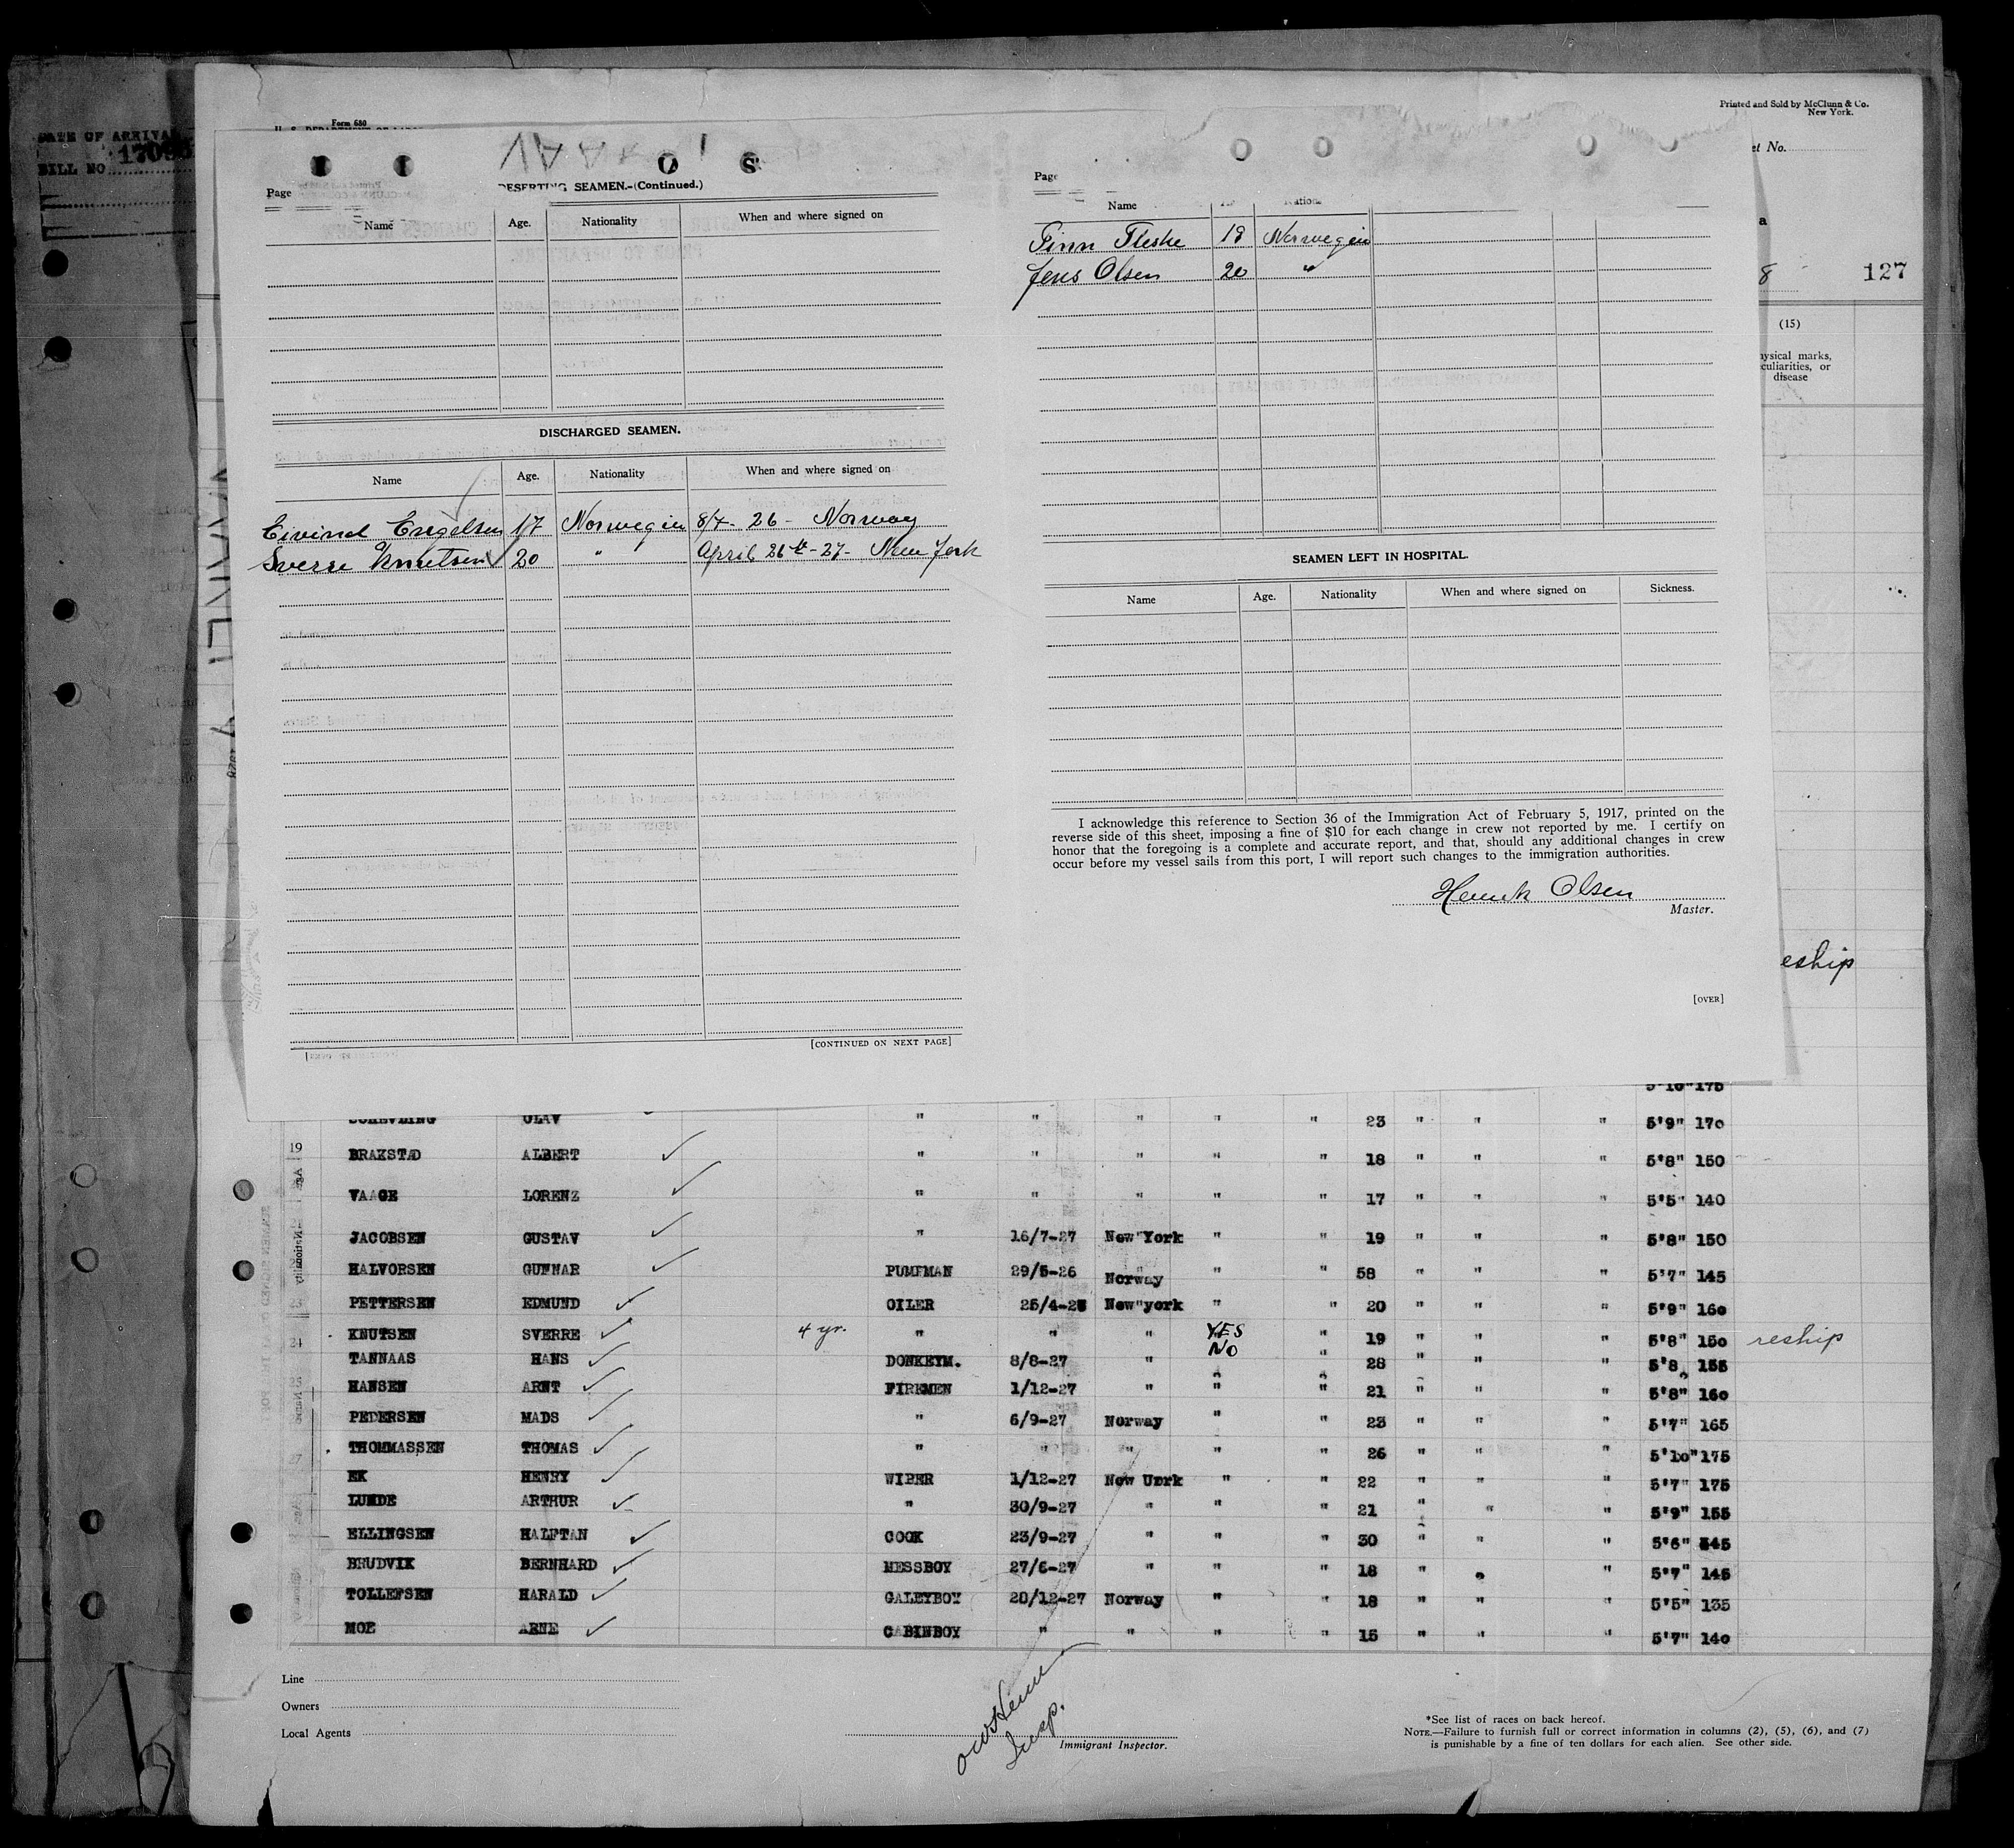 DATE OF ARRIVAL
BILL NO
Form 680
Printed and Sold by McClunn & Co.
New York.
et No.
a
8 127
(15)
ysical marks,
culiarities, or
disease
Page
DESERTING SEAMEN.-(Continued.)
Name Age. Nationality When and where signed on
DISCHARGED SEAMEN.
Name Age. Nationality When and where signed on
Eivind Engelsen 17 Norwegin 8/4- 26 - Norway
Sverre Knutsen 20 " April 26th - 27 - New York
[CONTINUED ON NEXT PAGE]
Page
Name
Finn Fleske 19 Norwegin
Jens Olsen 20 "
SEAMEN LEFT IN HOSPITAL.
Name Age. Nationality When and where signed on Sickness.
I acknowledge this reference to Section 36 of the Immigration Act of February 5, 1917, printed on the
reverse side of this sheet, imposing a fine of $10 for each change in crew not reported by me. I certify on
honor that the foregoing is a complete and accurate report, and that, should any additional changes in crew
occur before my vessel sails from this port, I will report such changes to the immigration authorities.
Henrik Olsen
Master.
[OVER]
eship
5'10" 175
OLAV " " " " " 23 " " " 5'9" 170
19 BRAKSTAD ALBERT " " " " " 18 " " " 5'8" 150
VAAGE LORENZ " " " " " 17 " " " 5'5" 140
JACOBSEN GUSTAV " 16/7-27 New"York " " 19 " " " 5'8" 150
HALVORSEN GUNNAR PUMPMAN 29/5-26 Norway " " 58 " " " 5'7" 145
23 PETTERSEN EDMUND OILER 25/4-27 New"york " " 20 " " " 5'9" 160
24 KNUTSEN SVERRE 4 yr. " " " YES " 19 " " " 5'8" 150 reship
TANNAAS HANS DONKEYM. 8/8-27 " No " 28 " " " 5'8 155
HANSEN ARNT FIREMEN 1/12-27 " " " 21 " " " 5'8" 160
PEDERSEN MADS " 6/9-27 Norway " " 23 " " " 5'7" 165
27 THOMMASSEN THOMAS " " " " " 26 " " " 5'10" 175
EK HENRY WIPER 1/12-27 New Uork " " 22 " " " 5'7" 175
LUNDE ARTHUR " 30/9-27 " " " 21 " " " 5'9" 155
ELLINGSEN HALFTAN COOK 23/9-27 " " " 30 " " " 5'6" 145
BRUDVIK BERNHARD MESSBOY 27/6-27 " " " 18 " " " 5'7" 145
TOLLEFSEN HARALD GALEYBOY 20/12-27 Norway " " 18 " " " 5'5" 135
MOE ARNE CABINBOY " " " " 15 " " " 5'7" 140
Line
Owners
Local Agents
Insp.
Immigrant Inspector.
*See list of races on back hereof.
NOTE.—Failure to furnish full or correct information in columns (2), (5), (6), and (7)
is punishable by a fine of ten dollars for each alien. See other side.